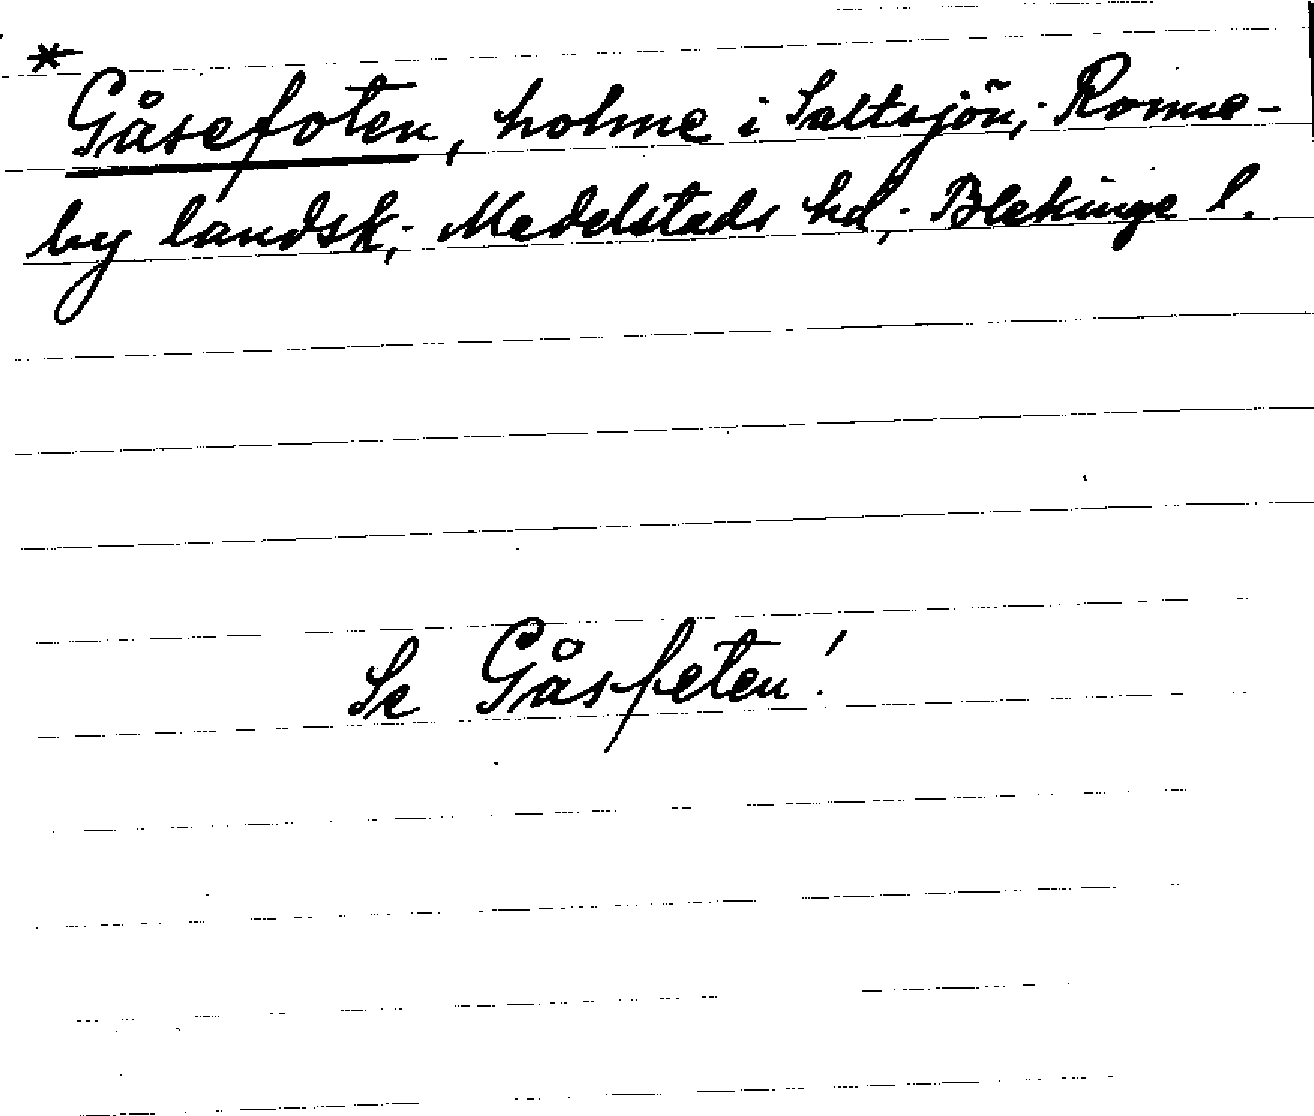 * Gåsefoten, holme i Saltsjön, Ronne-
by landsk., Medelstads hd, Blekinge l.
Se Gåsfeten!